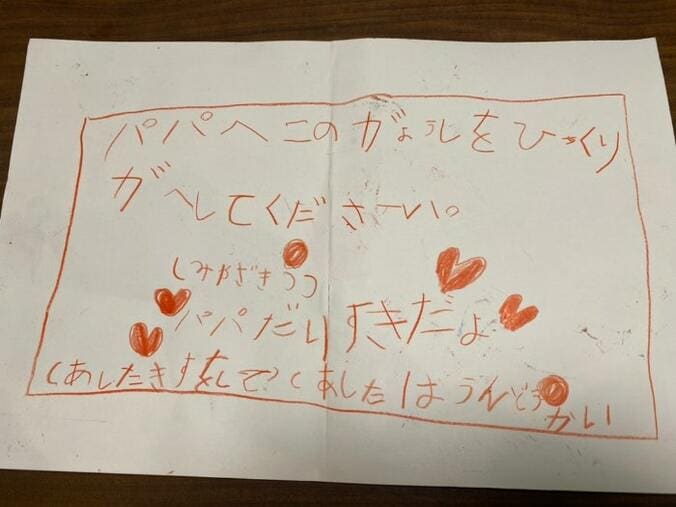 パパへこのがようしをひっくり
がへしてくださーい。
しみやざきココ
パパだいすきだよ
(あしたきすをして)(あしたはうんどう
かい